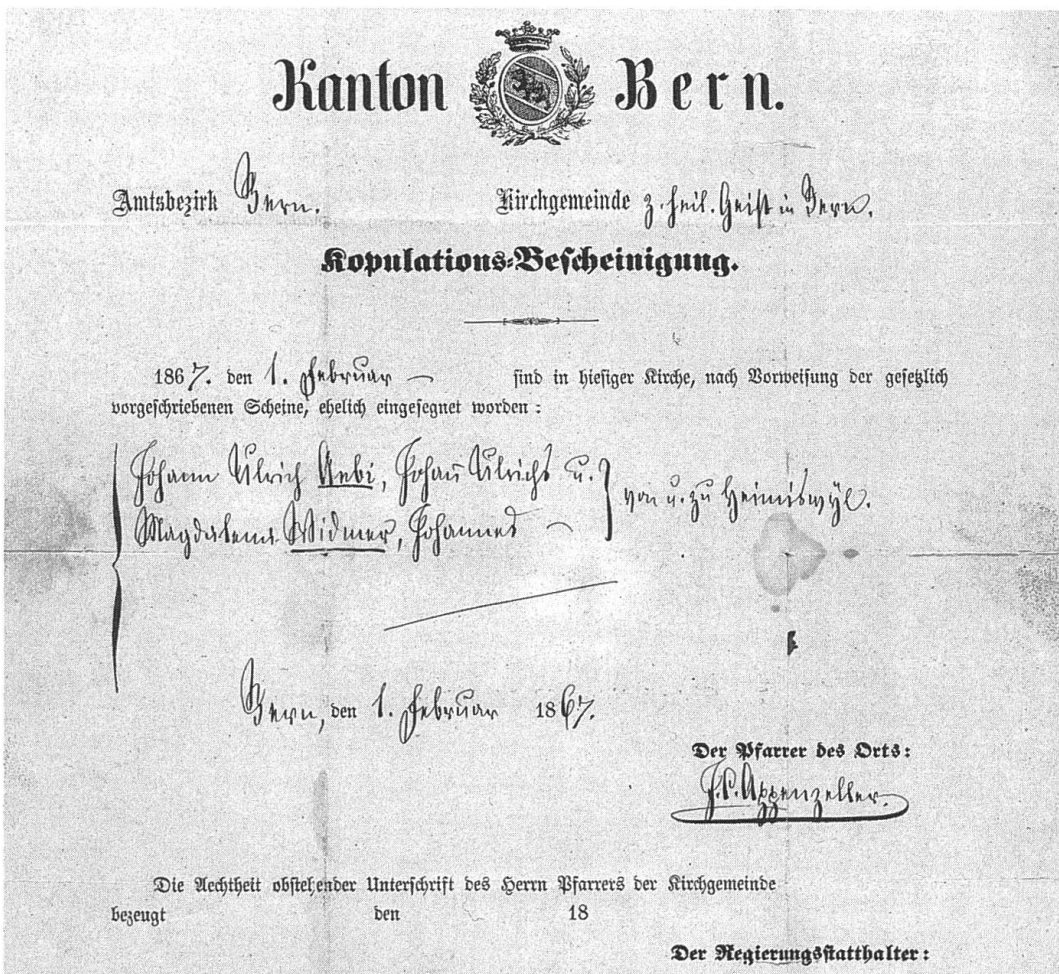 Kanton Bern.
Amtsbezirk Bern. Kirchgemeinde z. heil. Geist in Bern.
Kopulations-Bescheinigung.
1867. den 1. Februar sind in hiesiger Kirche, nach Vorweisung der gesetzlich
vorgeschriebenen Scheine, ehelich eingesegnet worden:
Johann Ulrich Aebi, Johañ Ulrichs u.
Magdalena Widmer, Johannes
von u. zu Heimiswyl.
Bern, den 1. Februar 1867.
Der Pfarrer des Orts:
Appenzeller.
Die Aechtheit obstehender Unterschrift des Herrn Pfarrers der Kirchgemeinde
bezeugt den 18
Der Regierungsstatthalter: